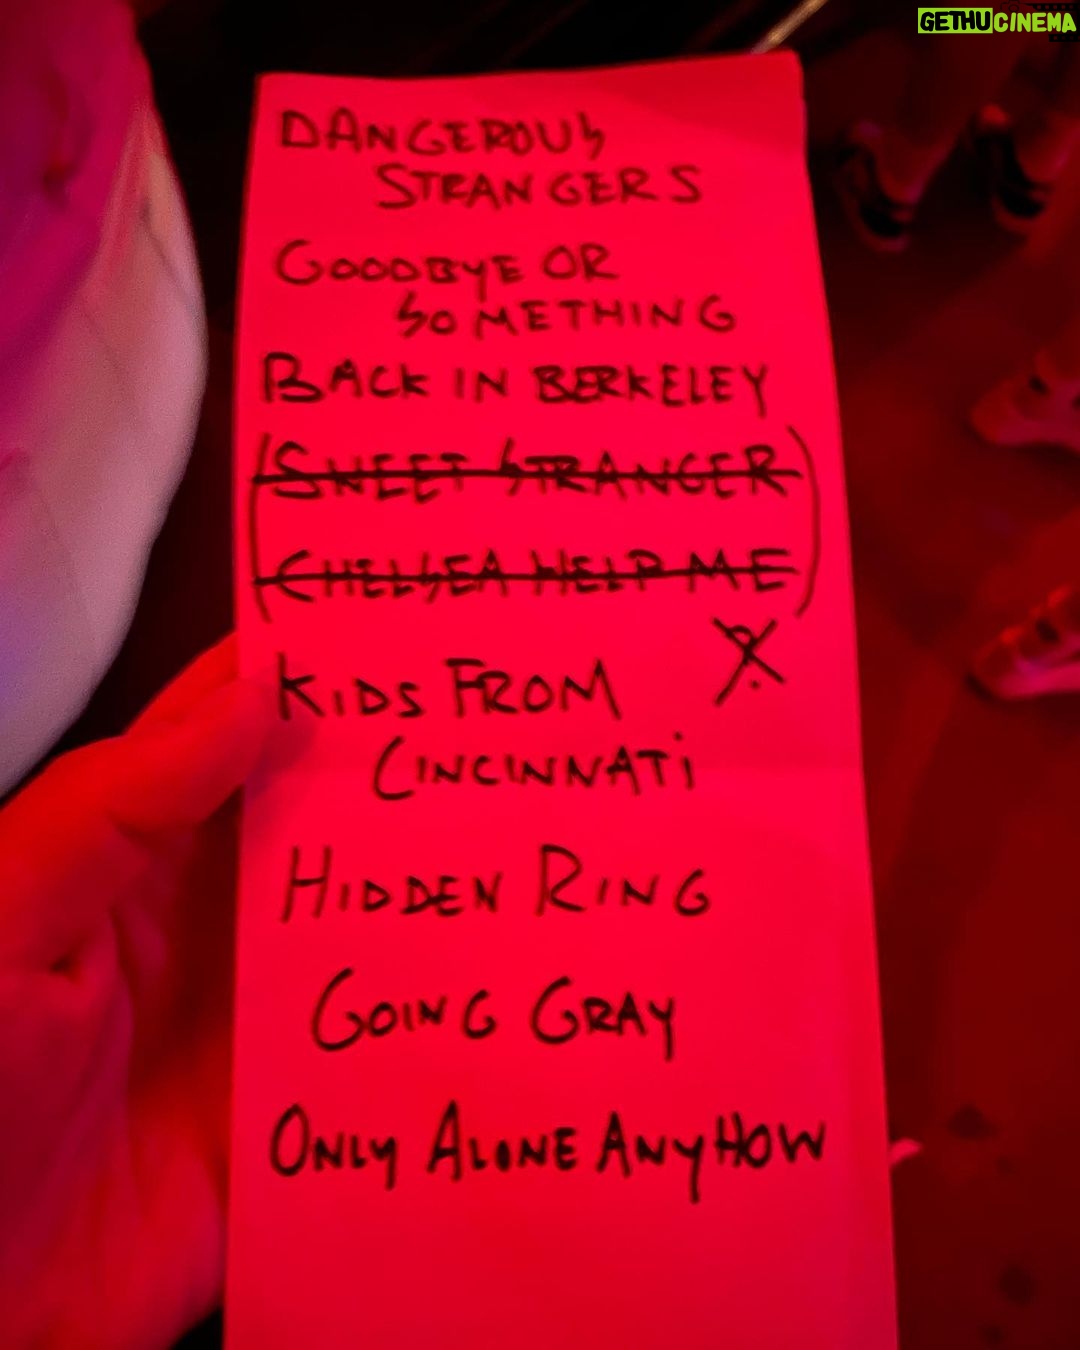 GETHUCINEMA
DANGEROUS
STRANGERS
GOODBYE OR
SOMETHING
BACK IN BERKELEY
(SWEET STRANGER
CHELSEA HELP ME)
?
KIDS FROM
CINCINNATi
HIDDEN RING
GOING GRAY
ONLY ALONE ANYHOW